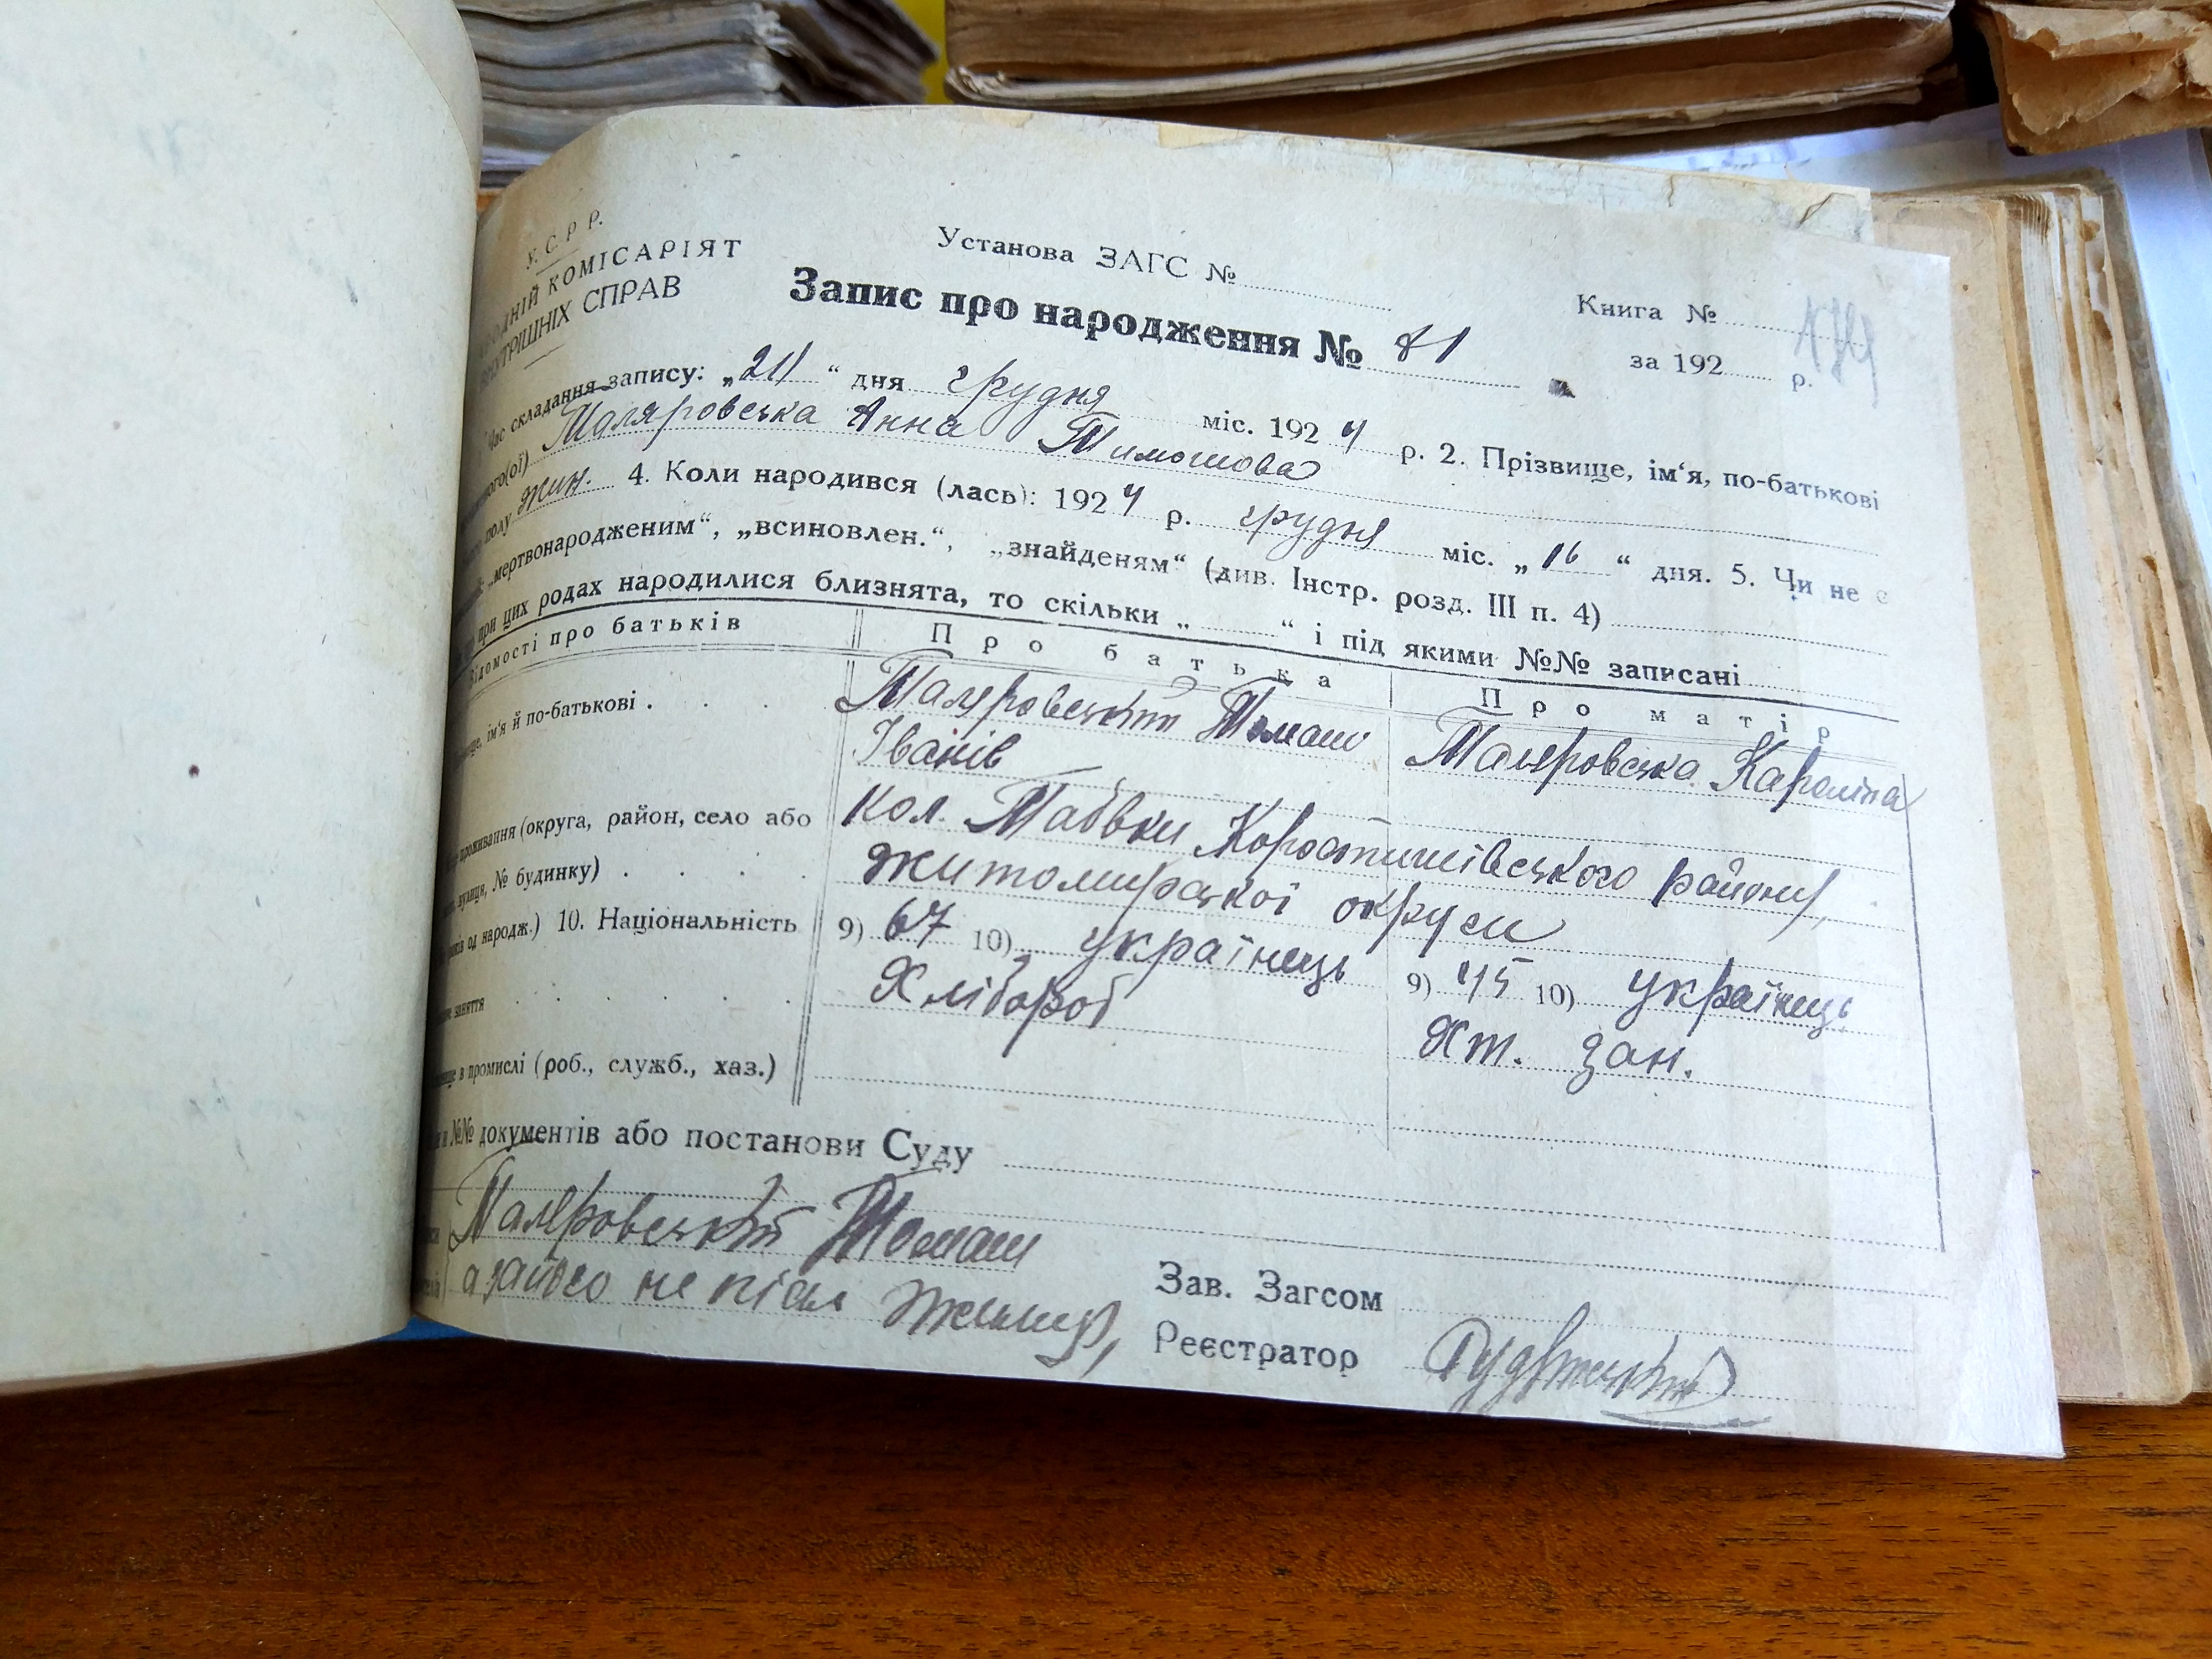 У. С. Р. Р.
КОМІСАРІЯТ
СПРАВ
Установа ЗАГС №
Книга №
Запис про народження № 81
за 192 р.
складання запису: „ “ дня грудня міс. 1924 р. 2. Прізвище, ім‘я, по-батькові
Маляровська Анна
полу жин. 4. Коли народився (лась): 1924 р. грудня міс. „16“ дня. 5. Чи не є
„мертвонародженим“, „всиновлен.“, „знайденям“ (див. Інстр. розд. III п. 4)
при цих родах народилися близнята, то скільки „ “ і під якими №№ записані
Відомості про батьків
Про батька
Про матір
ім‘я й по-батькові
Маляровський Томаш
Іванів
Маляровська Кароліна
проживання (округа, район, село або
вулиця, № будинку)
кол. Коростишівського району,
житомирської округи
од народж.) 10. Національність
9) 67 10) українець
9) 45 10) українець
заняття
Хлібороб
Хт. зан.
в промислі (роб., служб., хаз.)
№№ документів або постанови Суду
Маляровський Томаш
а за його не пісьм
Зав. Загсом
Реєстратор